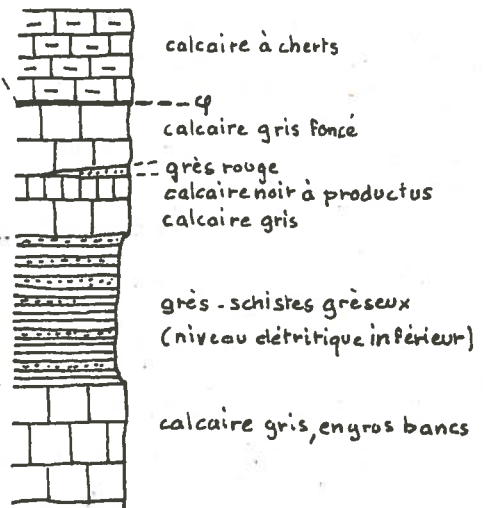 calcaire à cherts
φ
calcaire gris foncé
grès rouge
calcaire noir à productus
calcaire gris
grès - schistes grèseux
(niveau détritique inférieur)
calcaire gris, en gros bancs